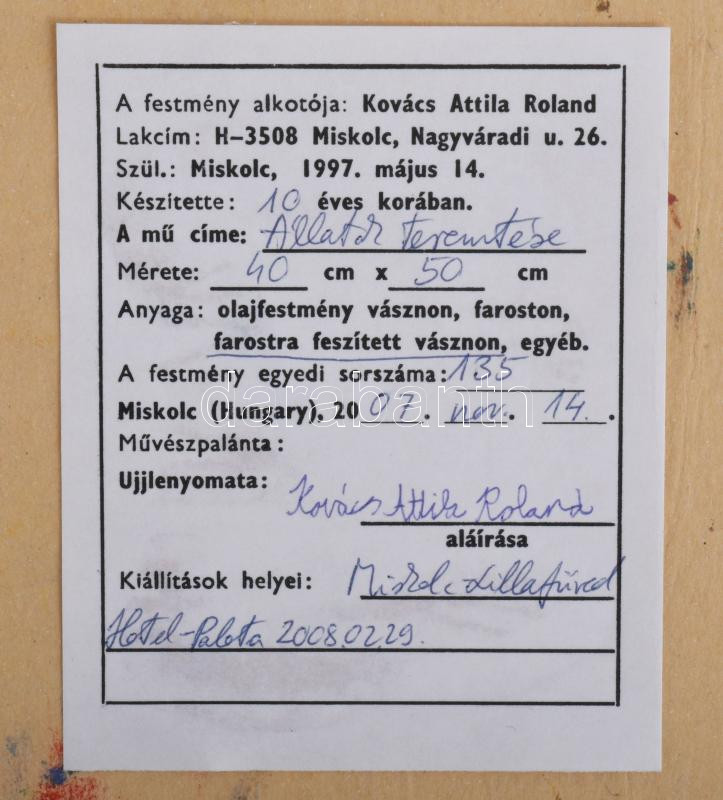 A festmény alkotója: Kovács Attila Roland
Lakcím: H-3508 Miskolc, Nagyváradi u. 26.
Szül.: Miskolc, 1997. május 14.
Készítette: 10 éves korában.
A mű címe: Állatok teremtése
Mérete: 40 cm x 50 cm
Anyaga: olajfestmény vásznon, faroston,
farostra feszített vásznon, egyéb.
A festmény egyedi sorszáma: 135
darabanth
Miskolc (Hungary), 2007. nov. 14.
Művészpalánta:
Ujjlenyomata:
Kovács Attila Roland
aláírása
Kiállítások helyei: Miskolc-Lillafüred
Hotel-Palota 2008.02.29.